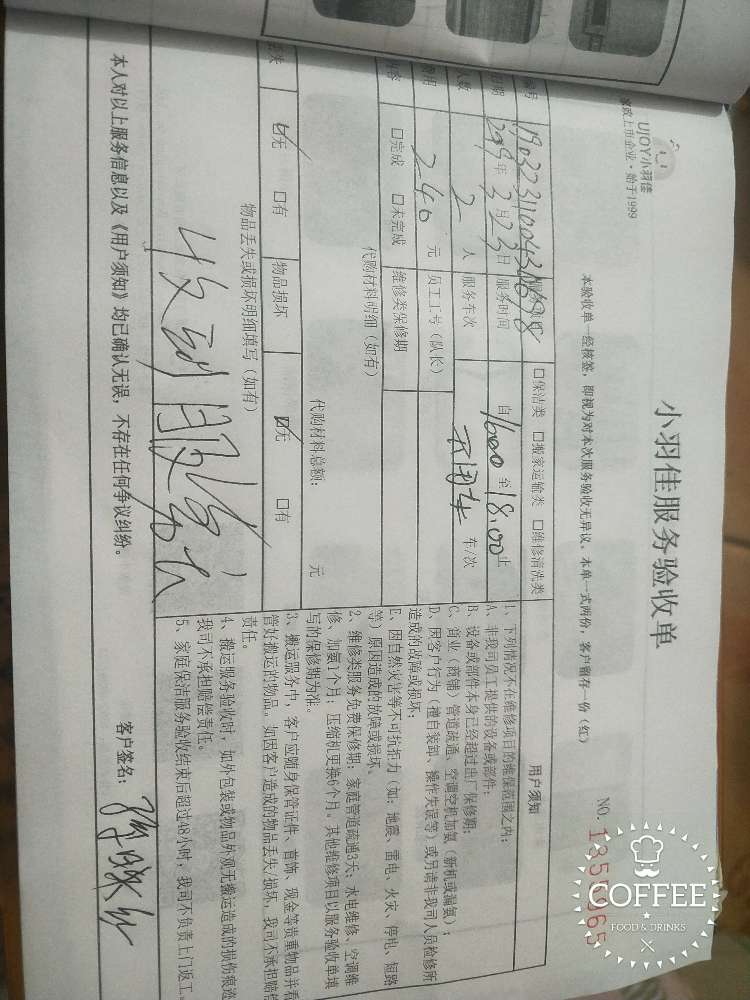 UJOY小羽佳
家政上市企业·始于1999
小羽佳服务验收单
本验收单一经核签，即视为对本次服务验收无异议。本单一式两份，客户留存一份（红）
NO.
COFFEE
FOOD & DRINKS
编号
□保洁类 □搬家运输类 □维修清洗类
日期 2019年3月23日 服务时间 自1600至18:00止
人数 2人 服务车次 不用车 车/次
费用 240元 员工工号（队长）
内容 □完成 □未完成 维修类保修期
代购材料明细（如有）
代购材料总额： 元
丢失 ☑无 □有 物品损坏 ☑无 □有
物品丢失或损坏明细填写（如有）
收到
用户须知
1、下列情况不在维修项目的维保范围之内：
A、非我司员工提供的设备或部件；
B、设备或部件本身已经超过出厂保修期；
C、商业（商铺）管道疏通、空调空机加氨（新机或漏氨）；
D、因客户行为（擅自装卸、操作失误等）或另请非我司人员检修所
造成的故障或损坏；
E、因自然灾害等不可抗拒力（如：地震、雷电、火灾、停电、短路
等）原因造成的故障或损坏。
2、维修类服务免费保修期：家庭管道疏通3天；水电维修、空调维
修、加氨1个月；压缩机更换6个月。其他维修项目以服务验收单填
写的保修期为准。
3、搬运服务中，客户应随身保管证件、首饰、现金等贵重物品并看
管好搬运的物品。如因客户造成的物品丢失/损坏，我司不承担赔偿
责任。
4、搬运服务验收时，如外包装或物品外观无搬运造成的损伤痕迹
我司不承担赔偿责任。
5、家庭保洁服务验收结束后超过48小时，我司不负责上门返工。
本人对以上服务信息以及《用户须知》均已确认无误，不存在任何争议纠纷。
客户签名：